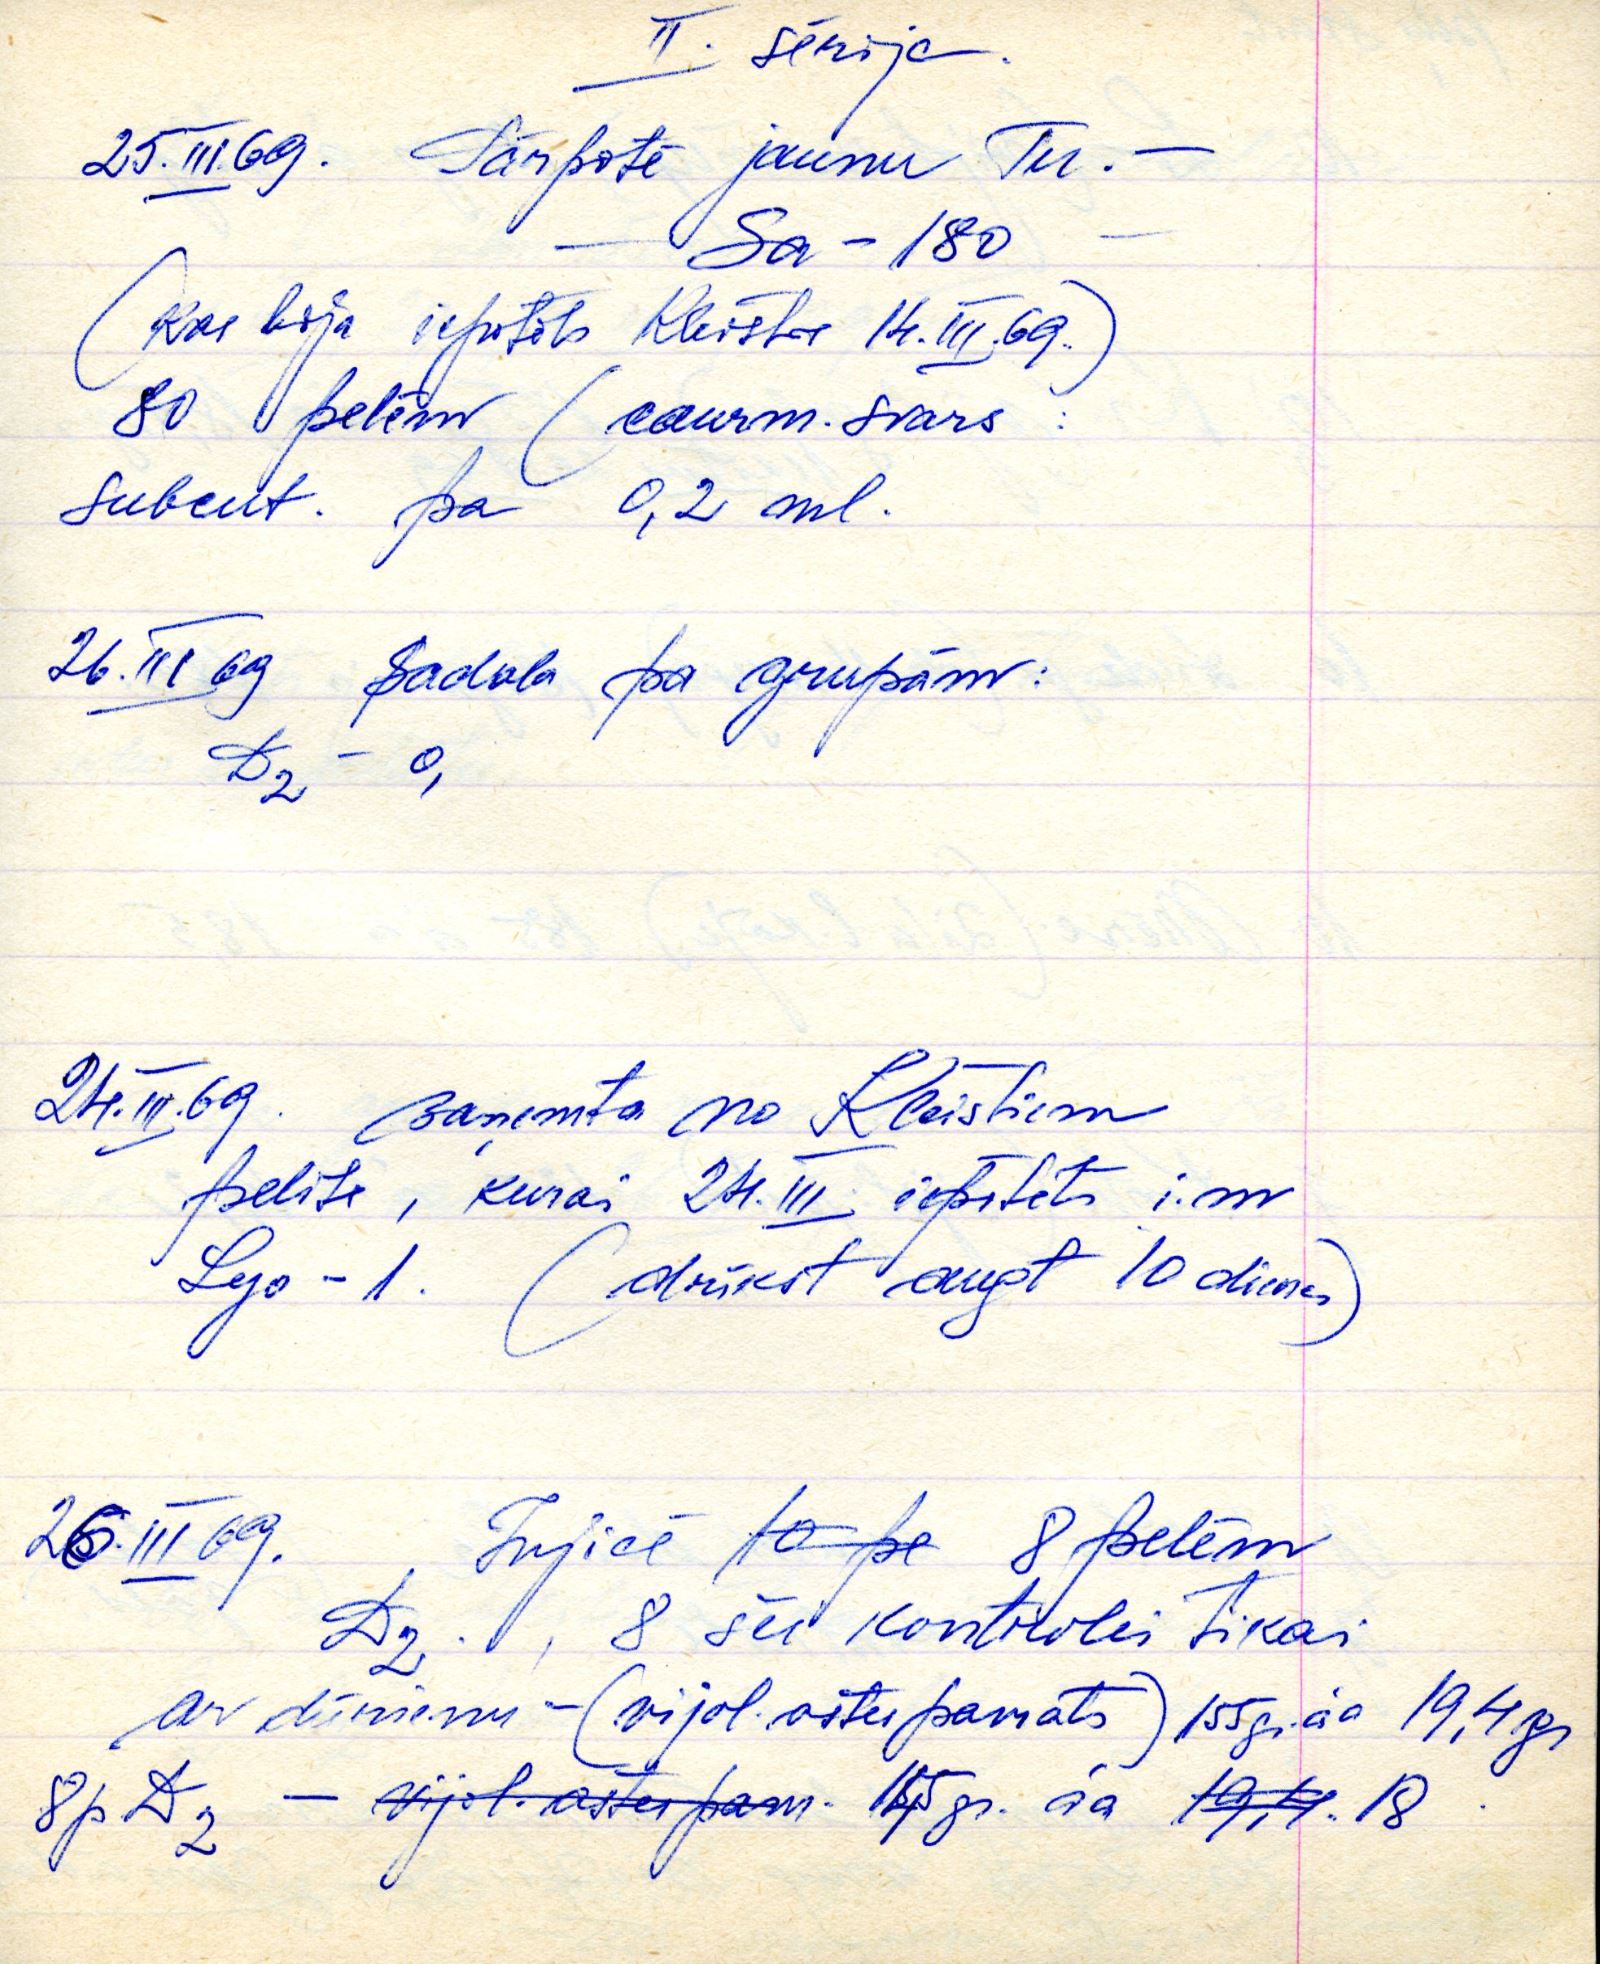 II. sērija.
25.III.69. Pārpotē jaunu Tu. —
— Sa - 180 —
(kas bija iepotēts Kleistos 14.III.69.)
80 pelēm (caurm. svars :
subcut. pa 0,2 ml.
26.III 69 Sadala pa grupām:
D2 - 0,
24.III.69. saņemta no Kleistiem
pelīte, kurai 24.III. iepotēts i.m
Lyo - 1. (drīkst augt 10 dienas)
26.III 69. Injicē 10 pe 8 pelēm
D2. , 8 šu kontrolei tikai
ar - (vijol. astes pamats) 155gr. āa 19,4 gr
8p D2 — vijol. astes pam. 145 gr. āa 19,4. 18.